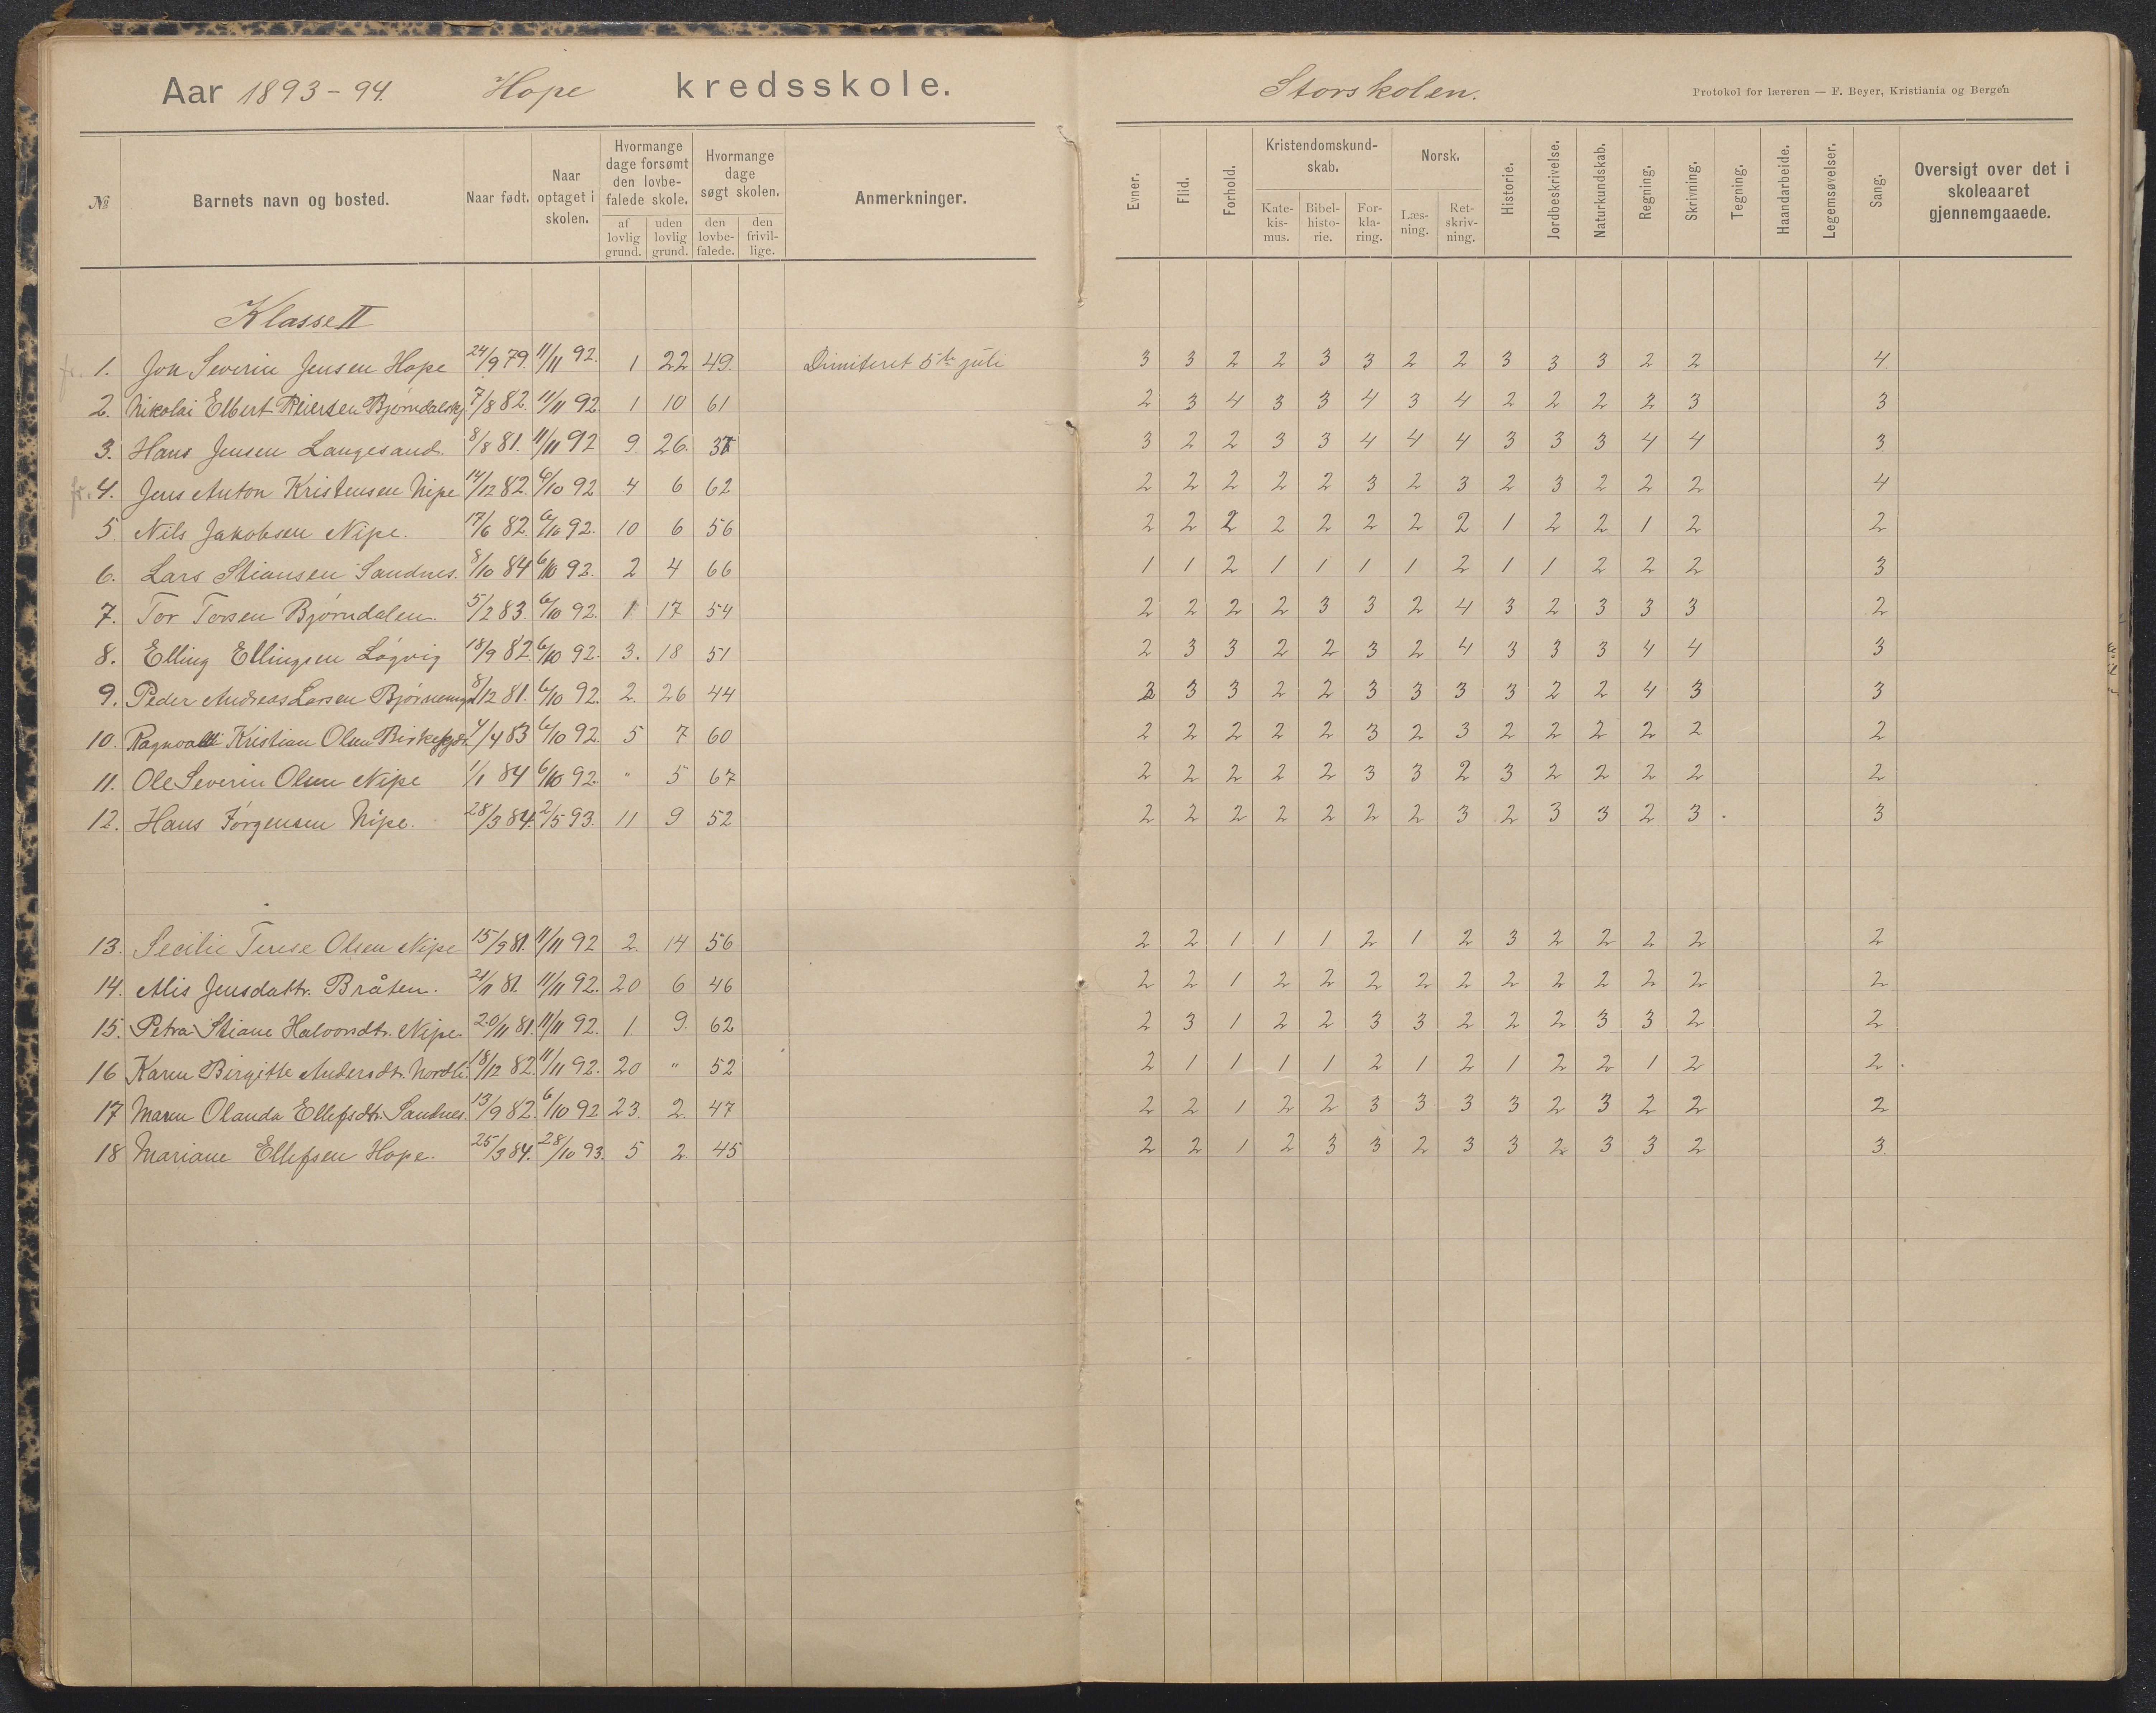 Aar 1893-94. Hope kredsskole.
Storskolen.
Protokol for læreren — F. Beyer, Kristiania og Bergen
№ Barnets navn og bosted. Naar født. Naar optaget i skolen. Hvormange dage forsømt den lovbefalede skole. af lovlig grund. uden lovlig grund. Hvormange dage søgt skolen. den lovbefalede. den frivillige. Anmerkninger.
Evner. Flid. Forhold. Kristendomskundskab. Katekismus. Bibelhistorie. Forklaring. Norsk. Læsning. Retskrivning. Historie. Jordbeskrivelse. Naturkundskab. Regning. Skrivning. Tegning. Haandarbeide. Legemsøvelser. Sang. Oversigt over det i skoleaaret gjennemgaaede.
Klasse II
fr. 1. Jon Severin Jensen Hope 24/9 79. 11/11 92. 1 22 49. Dimiteret 5te juli 3 3 2 2 3 3 2 2 3 3 3 2 2 4
2. Nikolai Elbert Reiersen 7/8 82. 11/11 92 1 10 61 2 3 4 3 3 4 3 4 2 2 2 2 3 3
3. Hans Jensen Langesand. 8/8 81. 11/11 92 9. 26. 3 2 2 3 3 4 4 4 3 3 3 4 4 3
fr. 4. Jens Anton Kristensen Nipe 14/12 82. 6/10 92 4 6 62 2 2 2 2 2 3 2 3 2 3 2 2 2 4
5. Nils Jakobsen Nipe. 17/6 82. 6/10 92. 10 6 56 2 2 2 2 2 2 2 2 1 2 2 1 2 2
6. Lars Stiansen Sandnes. 8/10 84 6/10 92. 2 4 66 1 1 2 1 1 1 1 2 1 1 2 2 2 3
7. Tor Torsen Bjørndalen. 5/2 83. 6/10 92. 1 17 54 2 2 2 2 3 3 2 4 3 2 3 3 3 2
8. Elling Ellingsen Løgvig 18/9 82. 6/10 92. 3. 18 51 2 3 3 2 2 3 2 4 3 3 3 4 4 3
9. Peder Andreas Larsen 8/12 81. 6/10 92. 2. 26 44 3 3 2 2 3 3 3 3 2 2 4 3 3
10. Ragnvald Kristian Olsen 4/4 83 6/10 92. 5 7 60 2 2 2 2 2 3 2 3 2 2 2 2 2 2
11. Ole Severin Olsen Nipe 1/1 84 6/10 92. " 5 67 2 2 2 2 2 3 3 2 3 2 2 2 2 2
12. Hans Jørgensen Nipe. 28/3 84. 2/5 93. 11 9 52 2 2 2 2 2 2 2 3 2 3 3 2 3 3
13. Secilie Terese Olsen Nipe 15/9 81. 11/11 92 2. 14 56 2 2 1 1 1 2 1 2 3 2 2 2 2 2
14. Alis Jensdattr. Bråten. 21/11 81. 11/11 92. 20 6 46 2 2 1 2 2 2 2 2 2 2 2 2 2 2
15. Petra Stiane Halvorsdtr. Nipe. 20/11 81. 11/11 92. 1. 9. 62 2 3 1 2 2 3 3 2 2 2 3 3 2 2
16 Karen Birgitte Andersdtr. Nordli. 18/12 82. 11/11 92. 20 " 52 2 1 1 1 1 2 1 2 1 2 2 1 2 2
17 Maren Olanda Ellefsdtr. Sandnes. 13/9 82. 6/10 92 23. 2. 47 2 2 1 2 2 3 3 3 3 2 3 2 2 2
18 Mariane Ellefsen Hope. 25/3 84. 28/10 93. 5 2 45 2 2 1 2 3 3 2 3 3 2 3 3 2 3.